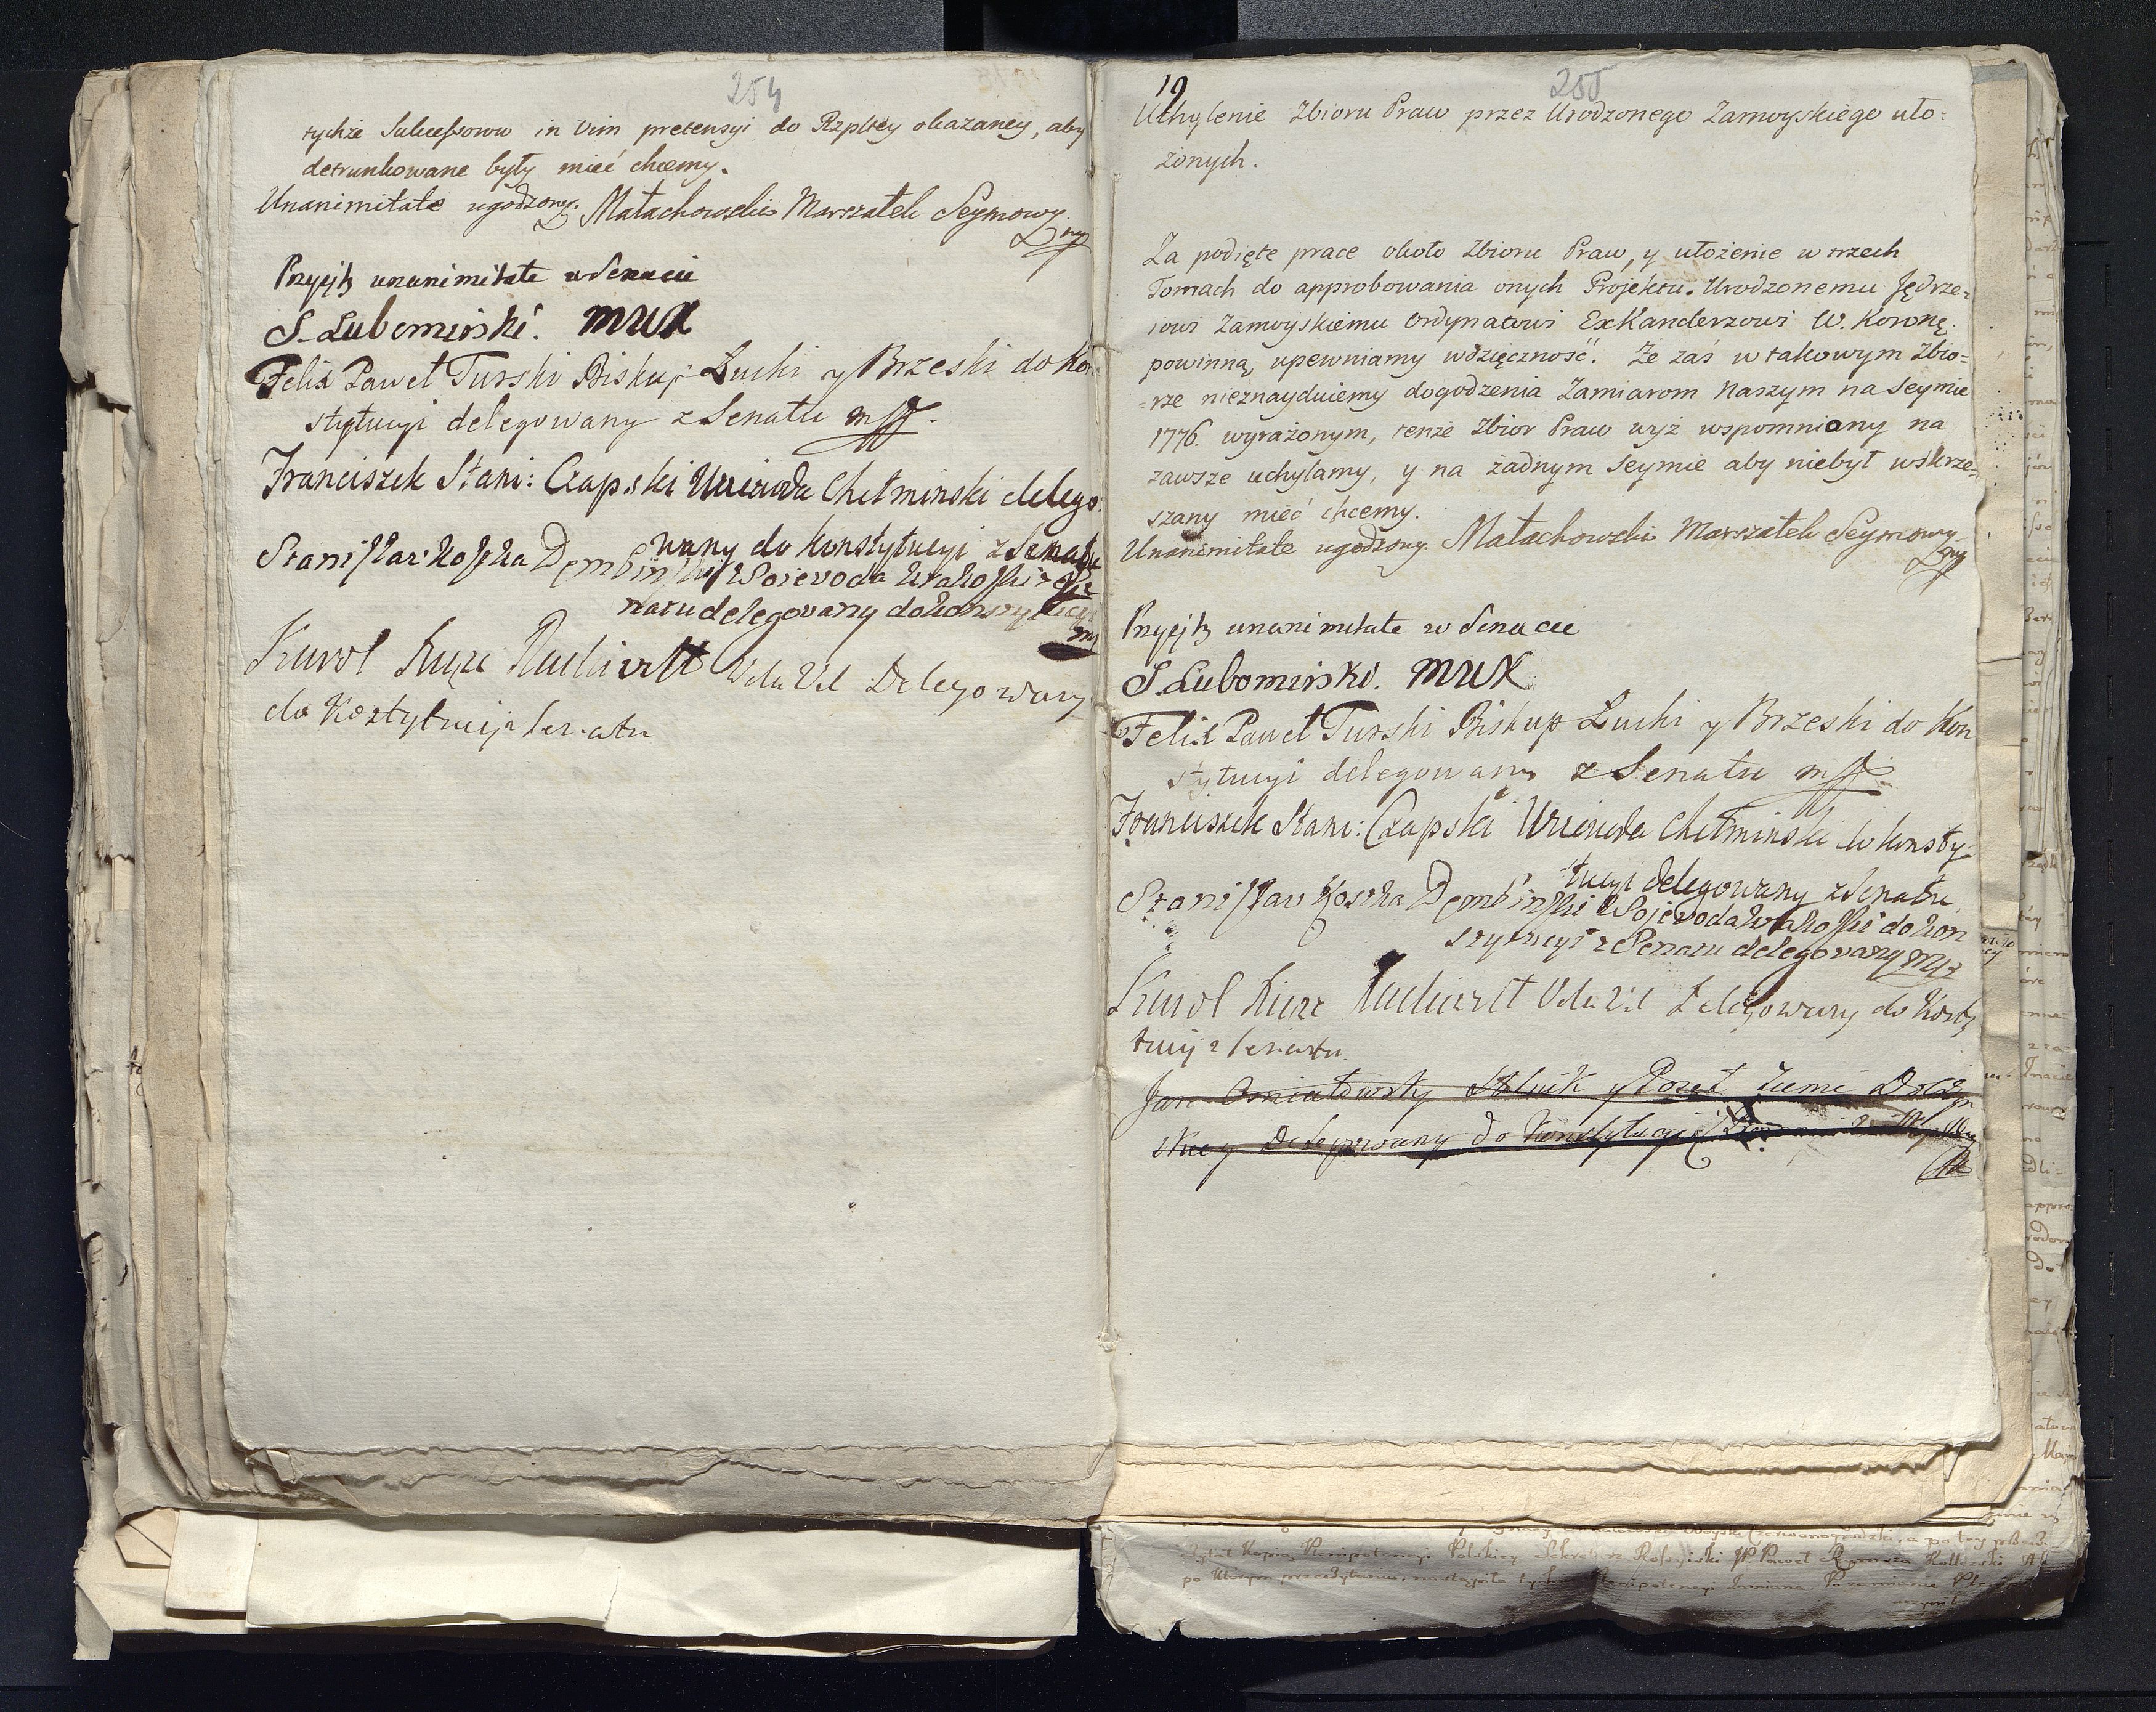 254
tychże Sukcessorow in Vim pretensyi do Rzpltey okazaney, aby
detrunkowane były mieć chcemy.
Unanimitate ugodzony. Małachowski Marszałek Seymowy
Przyięty unanimitate w Senacie
S. Lubomirski. MWK
Felix Paweł Turski Biskup Łucki y Brzeski do Kon
stytucyi delegowany z Senatu
Franciszek Stani: Czapski Woiewoda Chełminski delego
wany do Konstytucyi z Senatu
Stanisław Kostka Dembinski Woiewoda Krakowski z Se
natu delegowany do Konstytucyi
Karol Xiąże Radziwiłł Wda Wil Delegowany
do Kostytucji z Senatu
19
255
Uchylenie Zbioru Praw przez Urodzonego Zamoyskiego uło=
żonych.
Za podięte prace około Zbioru Praw, y ułożenie w trzech
Tomach do approbowania onych Projektu. Urodzonemu Jędrze=
iowi Zamoyskiemu Ordynatowi ExKanclerzowi W. Koronę.
powinną upewniamy wdzięczność. Że zaś w takowym Zbio=
=rze nieznayduiemy dogodzenia Zamiarom Naszym na Seymie
1776. wyrażonym, tenże Zbior Praw wyż wspomniony na
zawsze uchylamy, y na żadnym Seymie aby niebył wskrze=
szany mieć chcemy.
Unanimitate ugodzony. Małachowski Marszałek Seymowy
Przyięty unanimitate w Senacie
S. Lubomirski. MWK
Felix Paweł Turski Biskup Łucki y Brzeski do Kon
stytucyi delegowany z Senatu
Franciszek Stani: Czapski Woiewoda Chełminski do Konsty=
tucyi delegowany z Senatu
Stanisław Kostka Dembinski Woiewoda Krakowski do Kon
stytucyi z Senatu delegowany
Karol Xiąże Radziwiłł Wda Wil Delegowany do Kosty
tucij z Senatu.
Jan Stolnik y Poseł Ziemi
Delegowany do Konstytucyi